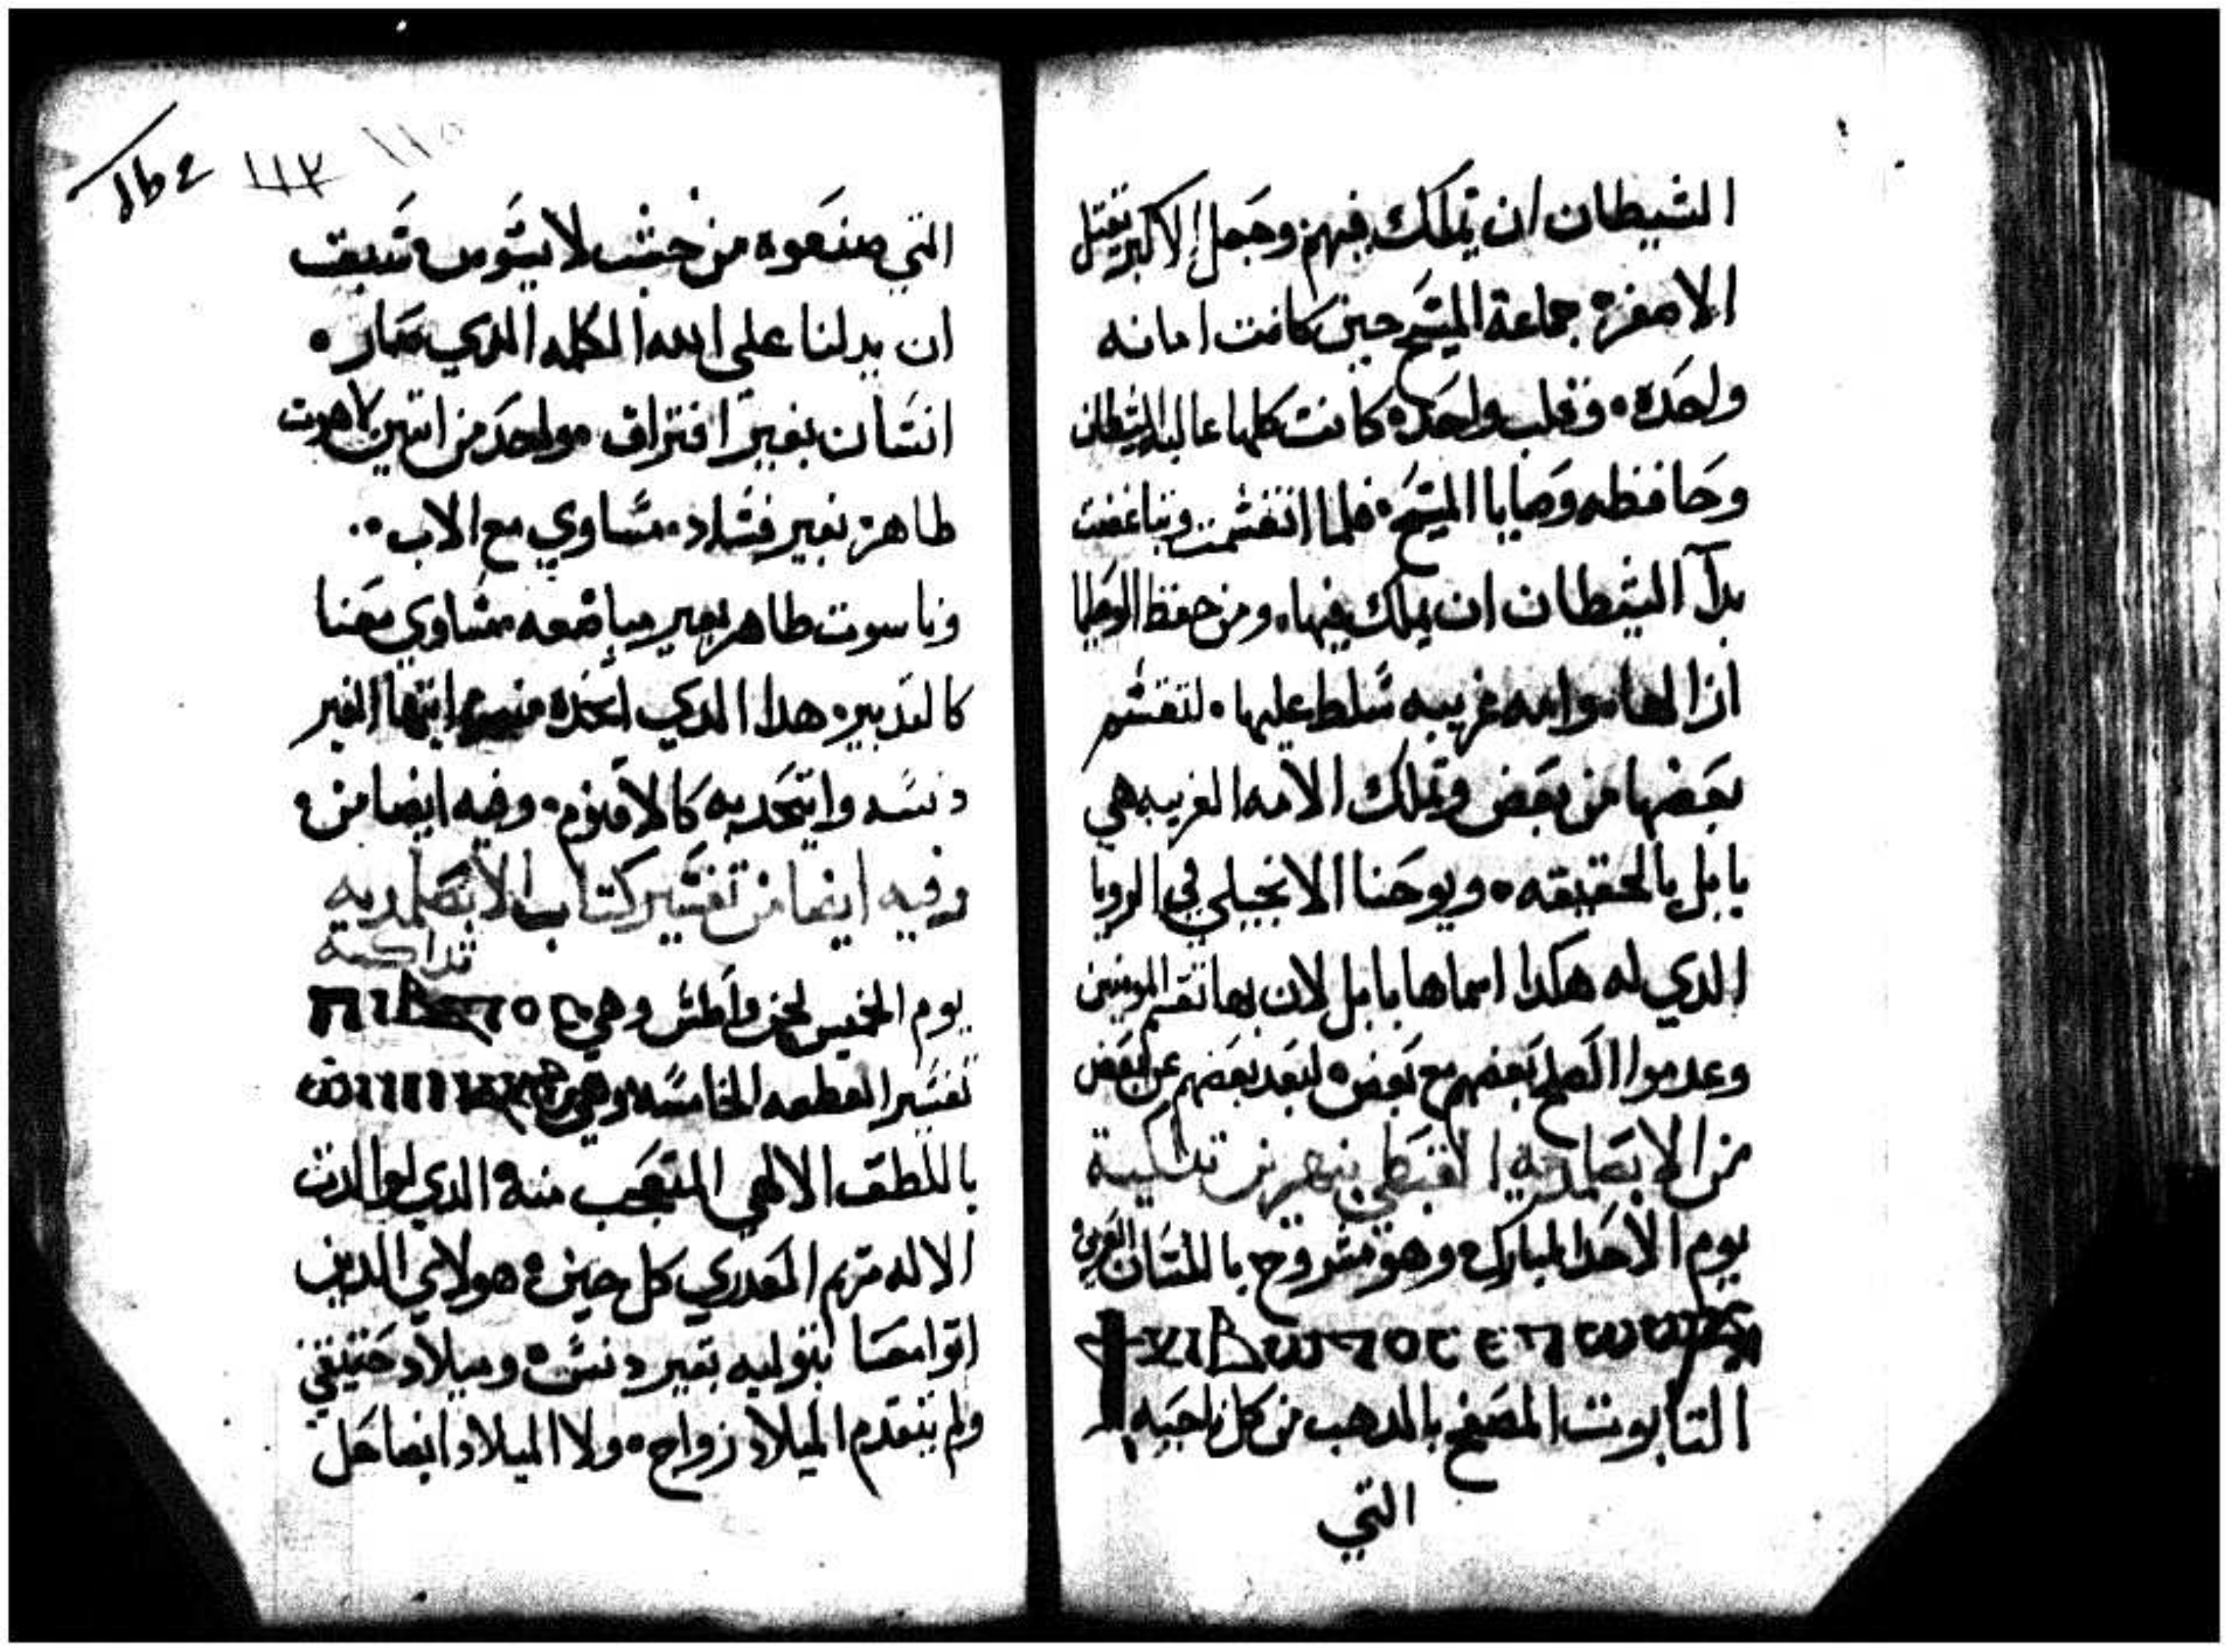 الشيطان ان يملك فيهم وجعل الاكبر يقتل
الاصغر جماعة المسيح حين كانت امانه
واحده وقلب واحده كانت كلها غالبه الشيطان
وحافظه وصايا المسيح فلما انقسمت وتباغضت
بدآ الشيطان ان يملك فيها ومن حفظ الوصايا
ازالها وامه غريبه سلط عليها لتقسم
بعضها من بعض وتملك الامه الغريبه هي
بابل بالحقيقه ويوحنا الانجيلي في الرويا
الدي له هكدا اسماها بابل لان بها تقسم المومنين
وعدموا الصلح بعضهم مع بعض لبعد بعضهم عن بعض
من الابصلمديه القبطي
يوم الاحد المبارك وهو مشروح باللسان العربي
التابوت المصفح بالدهب من كل ناحيه
التي
التي صنعوه من خشب لا يسوس تسبق
ان يدلنا علي الله الكلمه الدي صار
انسان بغير افتراق واحد من اتنين لاهوت
طاهر بغير فساد مساوي مع الاب
وناسوت طاهر بغير مباضعه مساوي معنا
كالتدبير هدا الدي اخده منك ايتها الغير
دنسه واتحد به كالاقنوم وفيه ايضا من
وفيه ايضا من تفسير كتاب الابصلمديه
تداكية
يوم الخميس لحن واطس وهي
تفسير القطعه الخامسه وهي
باللطق الالهي المتعجب منه الدي لوالدت
الاله مريم العدري كل حين هولاي الدين
اتوا معا بتوليه بغير دنس وميلاد حقيقي
ولم يتقدم الميلاد زواج ولا الميلاد ايضا حل